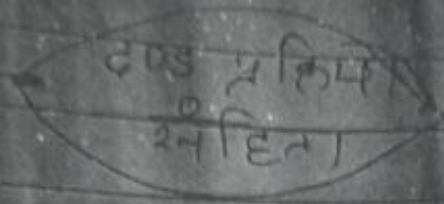 दण्ड प्रक्रिया
संहिता